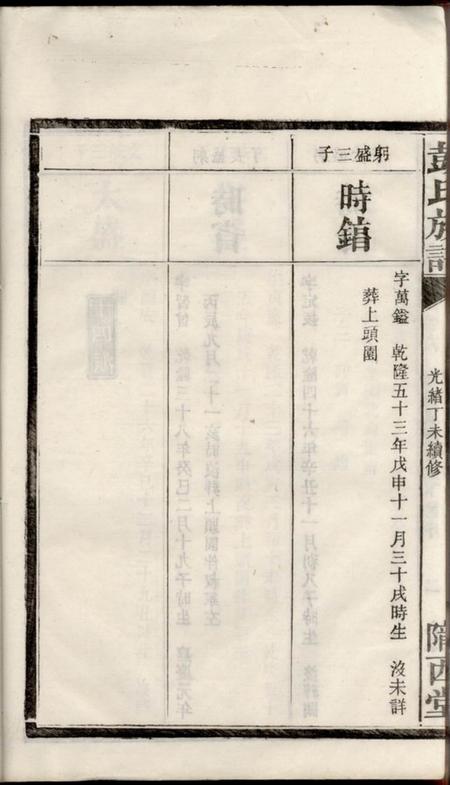 彭氏族譜
光緒丁未續修
隴西堂
躬盛三子
時錧
字萬鎰 乾隆五十三年戊申十一月三十戌時生 沒未詳
葬上頭園